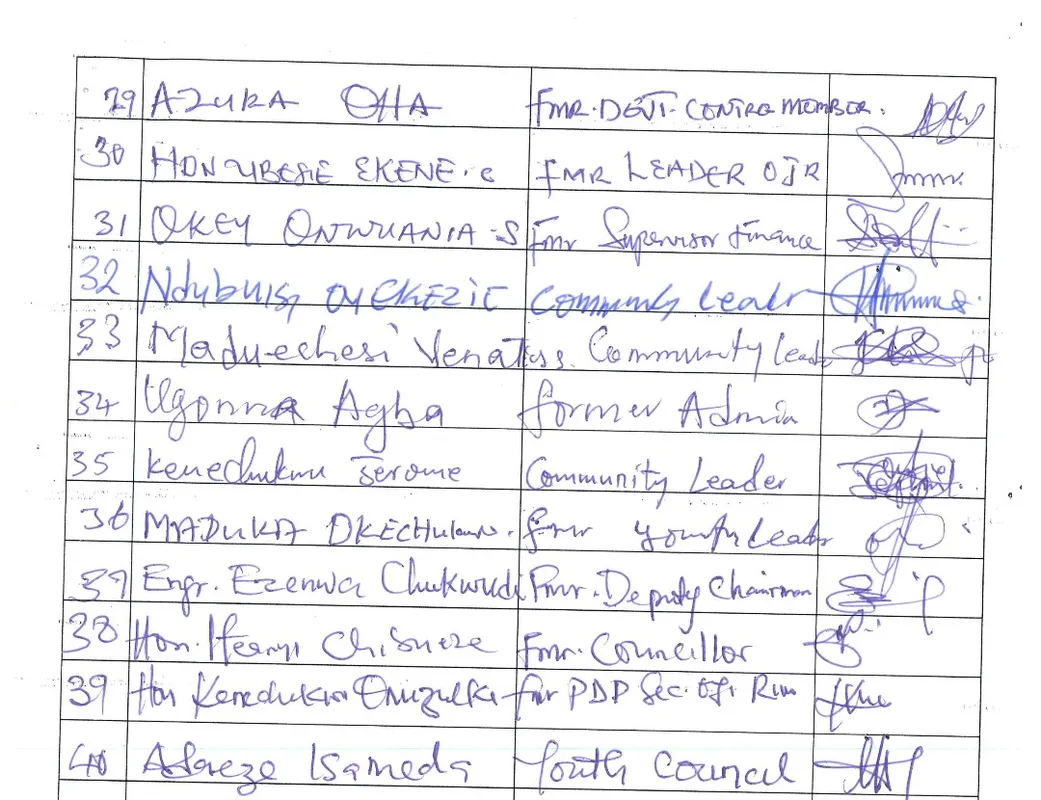 29 AZUKA OHA FMR. DEVT. CONTRO MEMBER.
30 HON UBESIE EKENE. C FMR LEADER OJR
31 OKEY ONWUANIA-S Fmr Supervisor Finance
32 Ndubuisi OYEKEZIE Community Leader
33 Madu-echesi Venatus. Community Leader
34 Ugonna Agba former Admin
35 Kenechukwu Jerome Community Leader
36 MADUKA OKECHUKWU. fmr youth Leader
37 Engr. Ezenwa Chukwudi Fmr. Deputy Chairman
38 Hon. Ifeanyi Fmr. Councillor
39 Hon Kenechukwu fmr PDP Sec. Oji River
40 Youth Council